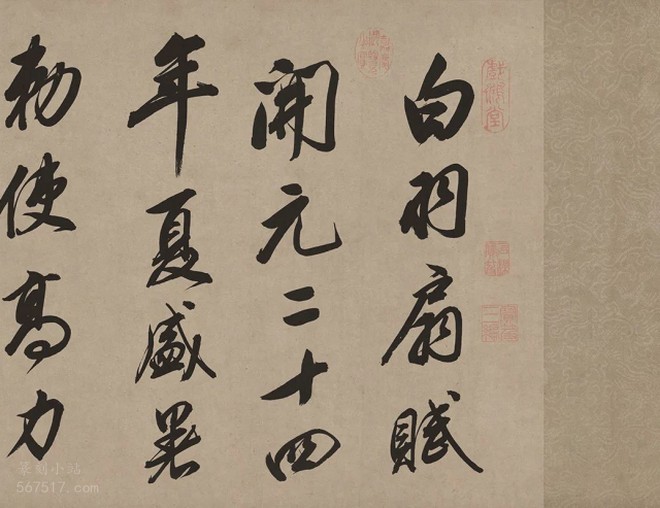 白羽扇賦
開元二十四
年夏盛暑
勑使高力
篆刻小站
567517.com